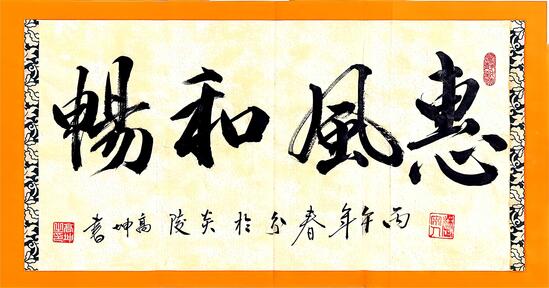 惠風和暢
丙午年春於炎陵高坤書